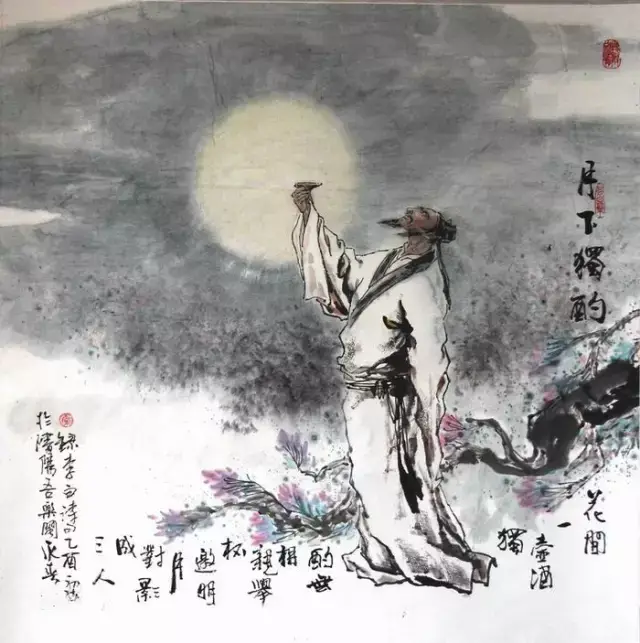 月下獨酌
花間
一
壺酒
獨
酌無
相
親舉
杯
邀明
月
對影
成
三人
錄李白詩乙酉
於陽吾樂園